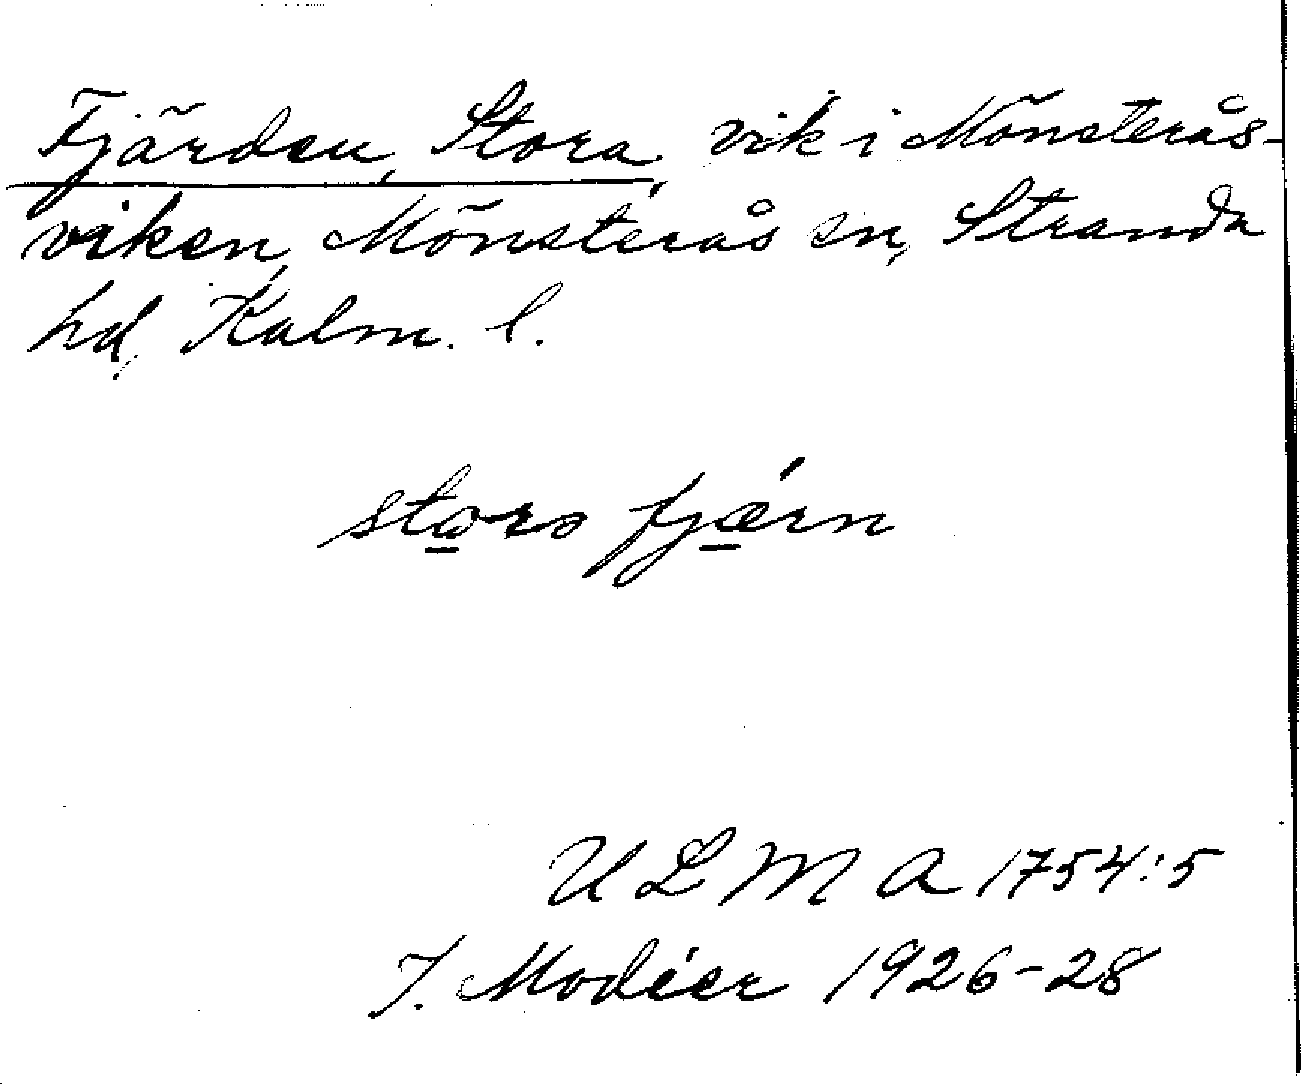 Fjärden, Stora, vik i Mönsterås-
viken, Mönsterås sn, Stranda
hd, Kalm. l.
storo fjǽrn
ULMA 1754:5
I. Modéer 1926-28